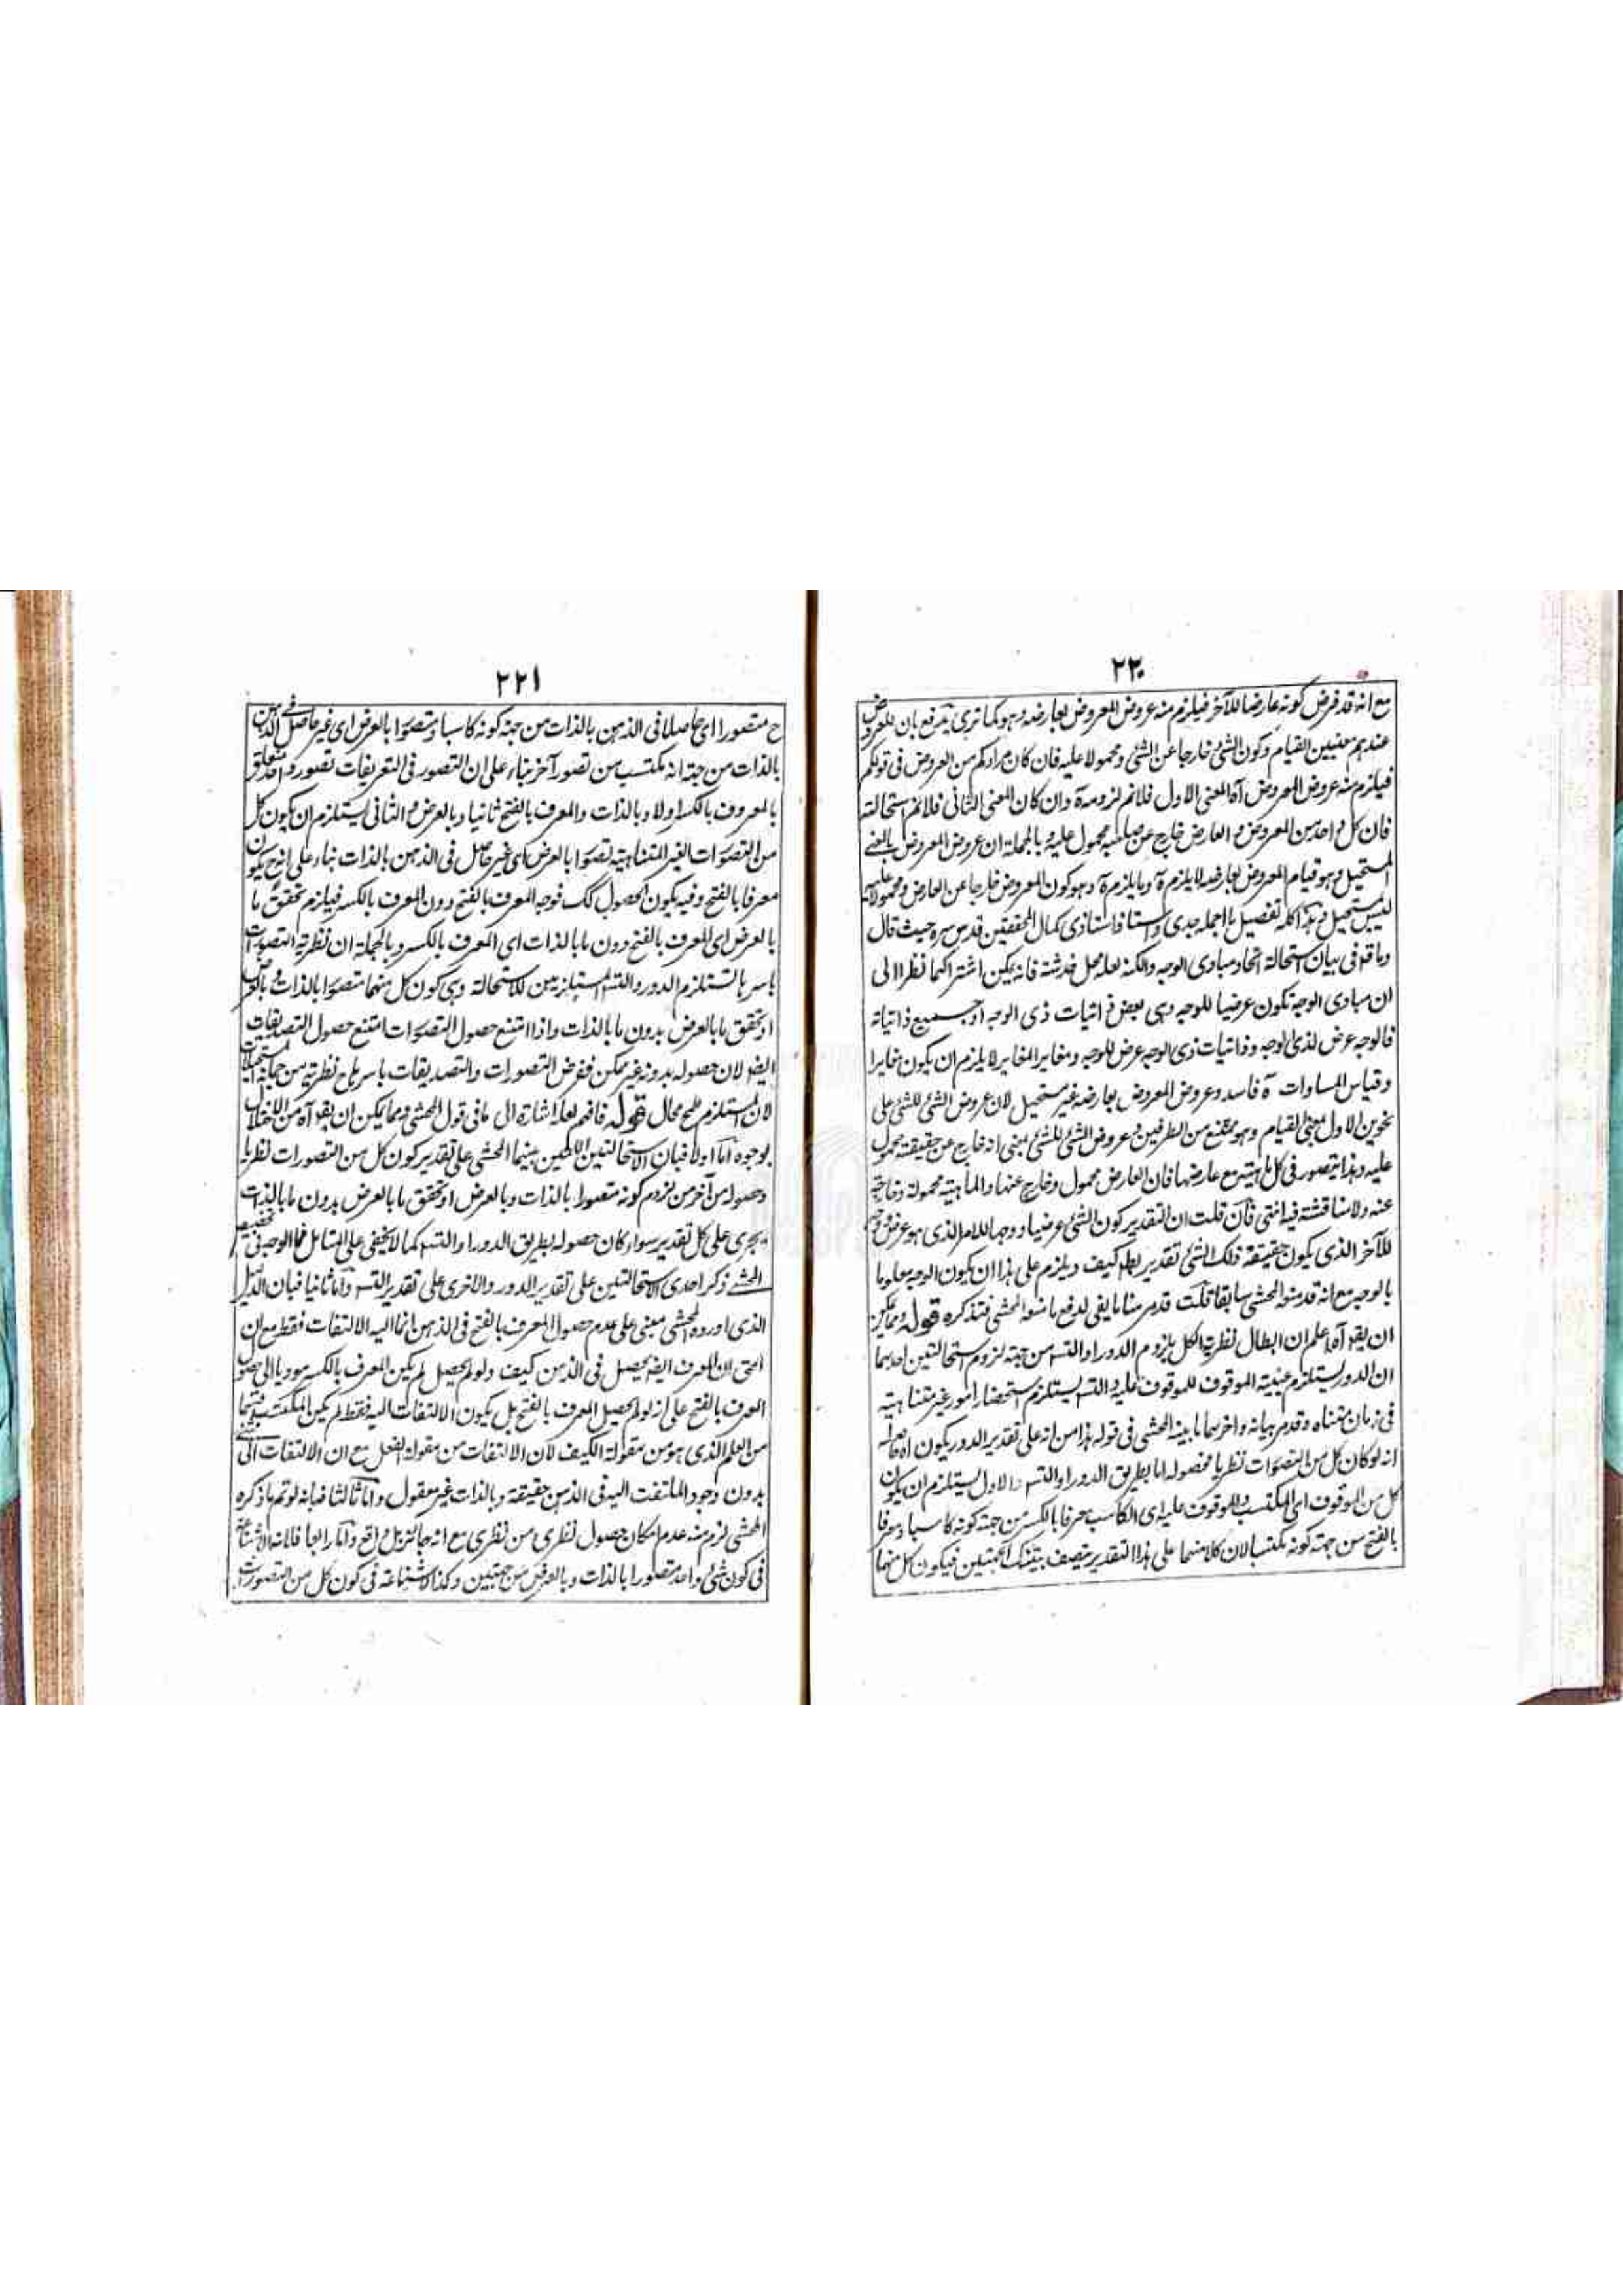 ٢٢٠
مع انه قد فرض كونه عارضا للآخر فيلزم منه عروض المعروض لعارضه وهو كما ترى يدفع بان للعروض
عندهم معنيين القيام وكون الشئ خارجا عن الشئ ومحمولا عليه فان كان مرادكم من العروض فى قولكم
فيلزم منه عروض المعروض آه المعنى الاول فلانم لزومه وان كان المعنى الثانى فلانم استحالته
فان كل واحد من المعروض والعارض خارج عن صاحبه محمول عليه وبالجملة ان عروض المعروض بالمعنى
المستحيل وهو قيام المعروض بعارضه لا يلزم وما يلزم وهو كون المعروض خارجا عن العارض ومحمولا عليه
ليس بمستحيل وهذا كله تفصيل ما اجمله جدى واستاذ استاذى كمال المحققين قدس سره حيث قال
وما قد فى بيان استحالة اتحاد مبادى الوجه والكنه لعله محل خدشة فانه يمكن اشتراكهما نظرا الى
ان مبادى الوجه تكون عرضيا للوجه وهى بعض ذاتيات ذى الوجه او جميع ذاتياته
فالوجه عرض لذى الوجه وذاتيات ذى الوجه عرض للوجه ومغاير المغاير لا يلزم ان يكون مغايرا
وقياس المساوات فاسد وعروض المعروض بعارضه غير مستحيل لان عروض الشئ للشئ على
نحوين الاول بمعنى القيام وهو ممتنع من الطرفين وعروض الشئ للشئ بمعنى انه خارج عن حقيقته محمول
عليه وهذا يتصور فى كل ماهية مع عارضها فان العارض محمول وخارج عنها والماهية محمولة وخارجة
عنه ولا مناقشة فيه انتهى فان قلت ان التقدير كون الشئ عرضيا ووجها للامر الذى هو عرض
للآخر الذى يكون حقيقة ذلك الشئ تقدير كيف ويلزم على هذا ان يكون الوجه معلوما
بالوجه مع انه قد منعه المحشى سابقا قلت قد مر منا ما يفى لدفع ما منعه المحشى فتذكره قوله ومما يمكن
ان يقه آه اعلم ان ابطال نظرية الكل بلزوم الدور او التسه من جهة لزوم استحالتين احدهما
ان الدور يستلزم عينية الموقوف للموقوف عليه والتسه يستلزم استحضار امور غير متناهية
فى زمان متناه وقد مر بيانه واخرهما ما بينه المحشى فى قوله هذا من انه على تقدير الدور يكون
انه لو كان كل من التصورات نظريا فحصوله اما بطريق الدور او التسه والاول يستلزم ان يكون
كل من الموقوف اى المكتسب والموقوف عليه اى الكاسب معرفا بالكسر من جهة كونه كاسبا ومعرفا
بالفتح من جهة كونه مكتسبا لان كلا منهما على هذا التقدير متصف بتينك الجهتين فيكون كل منهما
٢٢١
ح متصورا اى حاصلا فى الذهن بالذات من جهة كونه كاسبا ومتصورا بالعرض اى غير حاصل فى الذهن
بالذات من جهة انه مكتسب من تصور آخر بناء على ان التصور فى التعريفات تصور واحد متعلق
بالمعرف بالكسر اولا وبالذات والمعرف بالفتح ثانيا وبالعرض والثانى يستلزم ان يكون كل
من التصورات الغير المتناهية تصورا بالعرض اى غير حاصل فى الذهن بالذات بناء على انه ح يكون
معرفا بالفتح وفيه يكون الحصول كك فوجد المعرف بالفتح دون المعرف بالكسر فيلزم تحقق ما
بالعرض اى المعرف بالفتح دون ما بالذات اى المعرف بالكسر وبالجملة ان نظرية التصورات
باسرها تستلزم الدور والتسه المستلزمين للاستحالة وهى كون كل منهما متصورا بالذات وبالعرض
او تحقق ما بالعرض بدون ما بالذات واذا امتنع حصول التصورات امتنع حصول التصديقات
ايضا لان حصوله بدونه غير ممكن ففرض التصورات والتصديقات باسرها نظرية من جملة المستحيلات
لان المستلزم للمح محال قوله فافهم لعله اشارة الى ما فى قول المحشى ومما يمكن ان يقه آه من الاختلال
بوجوه اما اولا فبان الاستحالتين اللتين بينهما المحشى على تقدير كون كل من التصورات نظريا
وحصوله من آخر من لزوم كونه متصورا بالذات وبالعرض او تحقق ما بالعرض بدون ما بالذات
يجرى على كل تقدير سواء كان حصوله بطريق الدور او التسه كما لا يخفى على المتامل فما الوجه فى تخصيص
المحشى ذكر احدى الاستحالتين على تقدير الدور والاخرى على تقدير التسه واما ثانيا فبان الدليل
الذى اورده المحشى مبنى على عدم حصول المعرف بالفتح فى الذهن انما اليه الالتفات فقط مع ان
الحق ان المعرف ايضا يحصل فى الذهن كيف ولو لم يحصل لم يكن المعرف بالكسر موديا الى حصول
المعرف بالفتح على انه لو لم يحصل المعرف بالفتح بل يكون الالتفات اليه فقط لم يكن المكتسب
من العلم الذى هو من مقولة الكيف لان الالتفات من مقولة الفعل مع ان الالتفات الى
بدون وجود الملتفت اليه فى الذهن حقيقة وبالذات غير معقول واما ثالثا فبانه لو تم ما ذكره
المحشى لزم منه عدم امكان حصول نظرى من نظرى مع انه جائز بل واقع واما رابعا فلانه لا شناعة
فى كون شئ واحد متصورا بالذات وبالعرض من جهتين وكذا لا شناعة فى كون كل من التصورات